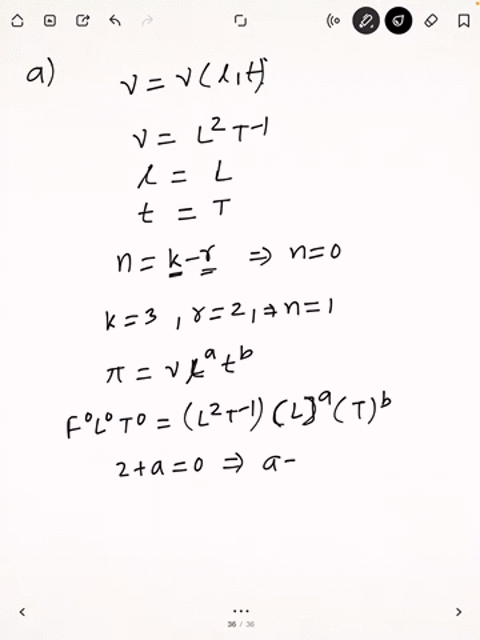 a) ν = ν(l,t)
ν = L²T⁻¹
l = L
t = T
n = k-r ⇒ n=0
k=3, r=2, ⇒ n=1
π = ν l^a t^b
F⁰L⁰T⁰ = (L²T⁻¹) (L)^a (T)^b
2+a=0 ⇒ a-
36 / 36